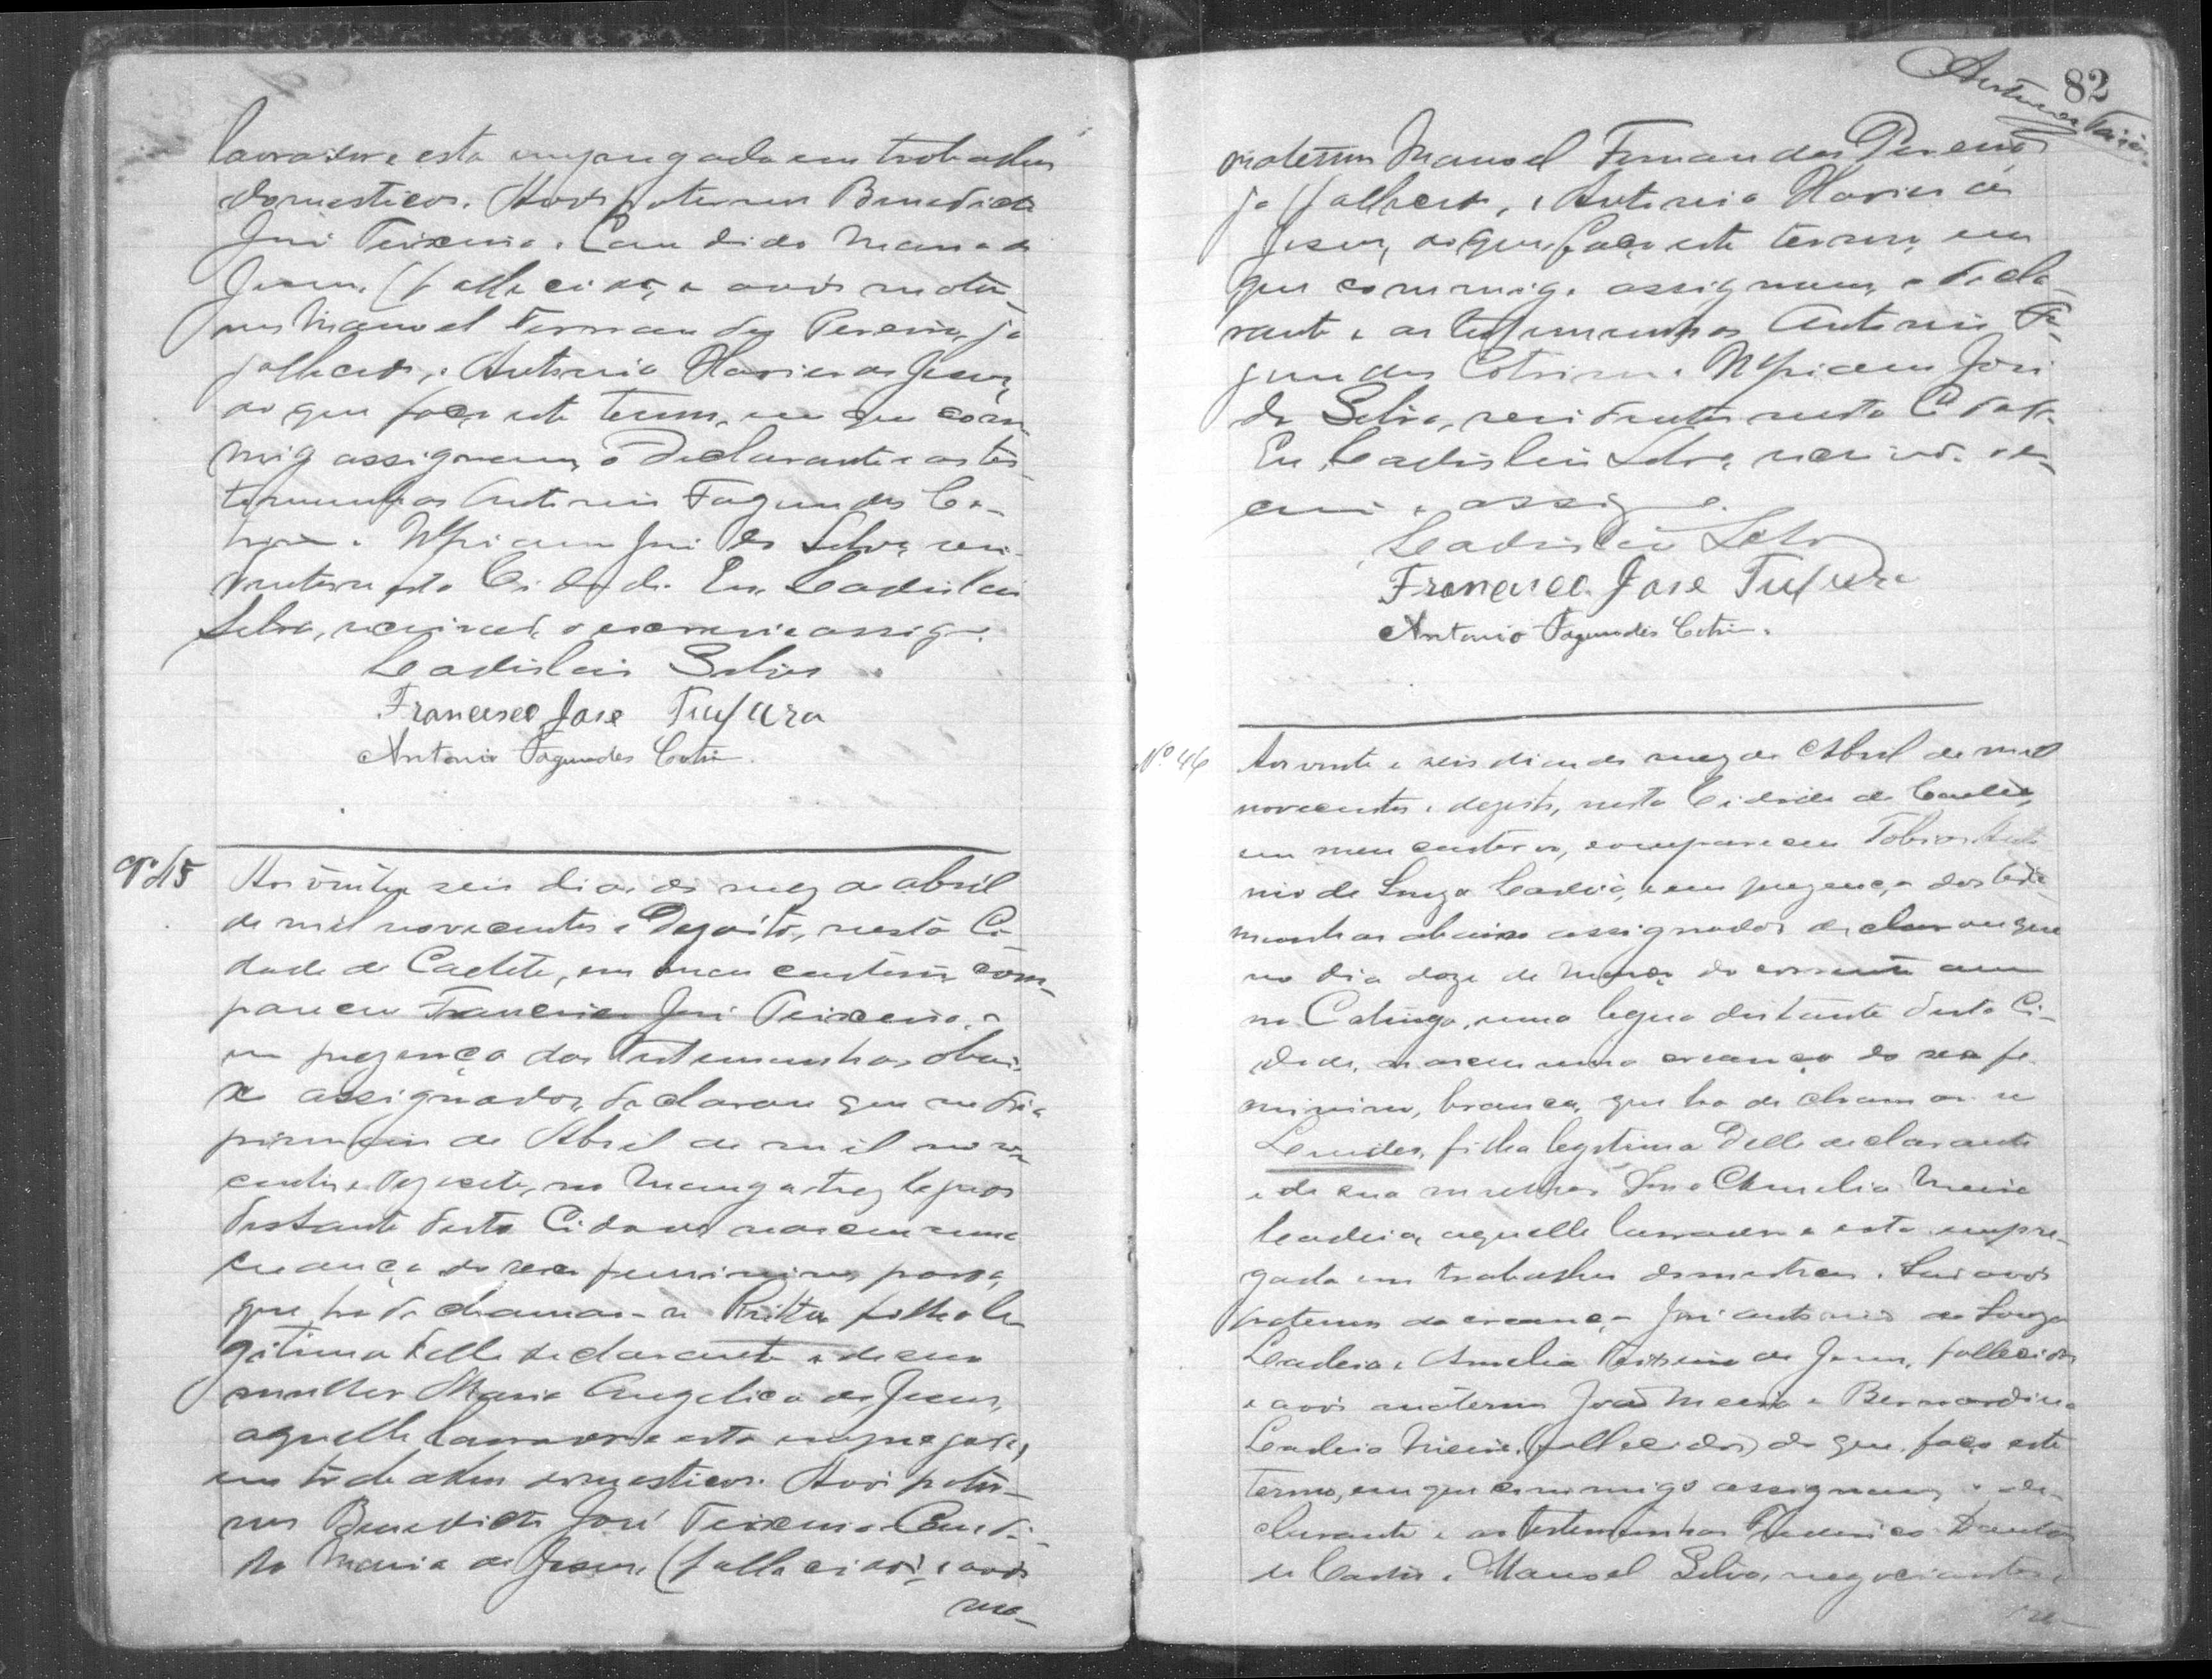 lavrador e esta empregada em trabalhos
domesticos. Avós paternos Benedicto
José Teixeira e Candida Maria de
Jesus, (fallecidos, e avós mater-
nos Manoel Fernandes Pereira, ja
fallecido, e Antonia Maria de Jesus,
do que faço este termo, em que com-
migo assignam, o declarante e as tes-
temunhas Antonio Fagundes Co-
trim e José da Silva, resi-
dentes nesta Cidade. Eu, Ladislau
Silva, escrivão, o escrevi e assigno.
Ladislau Silva
Francisco Jose
Antonio Fagundes Cotrim.
Nº 45
Aos vinte e seis dias do mez de abril
de mil novecentos e Dezoito, nesta Ci-
dade de Caeteté, em meu cartorio com-
pareceu Francisco José Teixeira, e
em prezença das testemunhas abai-
xo assignadas, declarou que no dia
primeiro de Abril de mil nove
centos e dezesete, no Manga tres legoas
distante desta Cidade nasceu uma
creança do sexo feminino, parda,
que ha de chamar-se Ritta filha le-
gitima delle declarante e de sua
mulher Maria Angelica de Jesus,
aquelle lavrador e esta empregada,
em trabalhos domesticos. Avós pater-
nos Benedicto José Teixeira e Candi-
da Maria de Jesus, (fallecidos, e avós
ma-
82
maternos Manoel Fernandes Pereira
ja fallecido, e Antonia Maria de
Jesus, do que faço este termo, em
que commigo assignam, o decla-
rante e as testemunhas Antonio Fa-
gundes Cotrim e José
da Silva, residentes nesta Cidade.
Eu, Ladislau Silva, escrivão, o es-
crevi e assigno.
Ladislau Silva
Francisco Jose
Antonio Fagundes Cotrim.
Nº 46
Aos vinte e seis dias do mez de Abril de mil
novecentos e dezoito, nesta Cidade de Caeteté,
em meu cartorio, compareceu Tobias Anto
nio de Souza Ladeia, e em prezença das teste-
munhas abaixo assignadas declarou que
no dia doze de Março do corrente anno
no Catinga, uma legua distante desta Ci-
dade, nasceu uma creança do sexo fe-
minino, branca, que ha de chamar-se
filha legitima delle declarante
e de sua mulher Dona Amelia
Ladeia, aquelle lavrador e esta empre-
gada em trabalhos domesticos. São avós
paternos da creança José Antonio de Souza
Ladeia e Amelia de Jesus, fallecidos
e avós maternos João e Bernardina
Ladeia (fallecidos) do que faço este
termo, em que commigo assignam o de-
clarante e as testemunhas Frederico Dantas
de Castro e Manoel Silva, negociantes